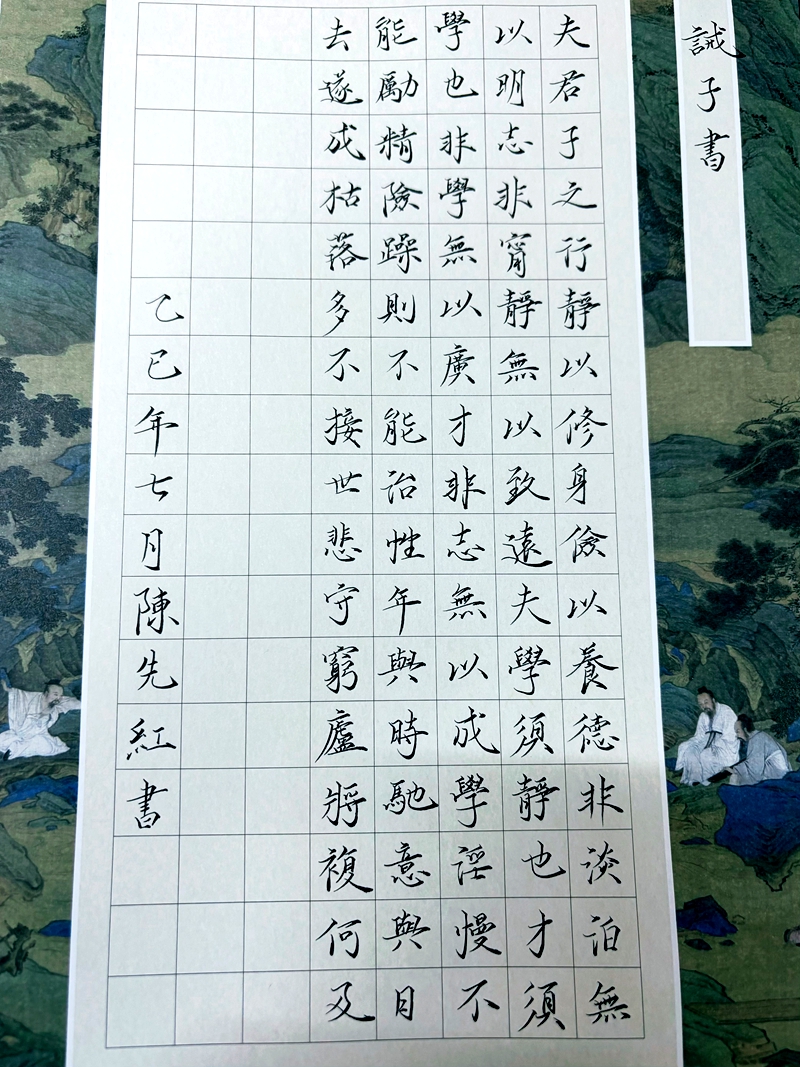 誡子書
夫君子之行靜以修身儉以養德非淡泊無
以明志非甯靜無以致遠夫學須靜也才須
學也非學無以廣才非志無以成學淫慢不
能勵精險躁則不能治性年與時馳意與日
去遂成枯落多不接世悲守窮廬將複何及
乙巳年七月陳先紅書